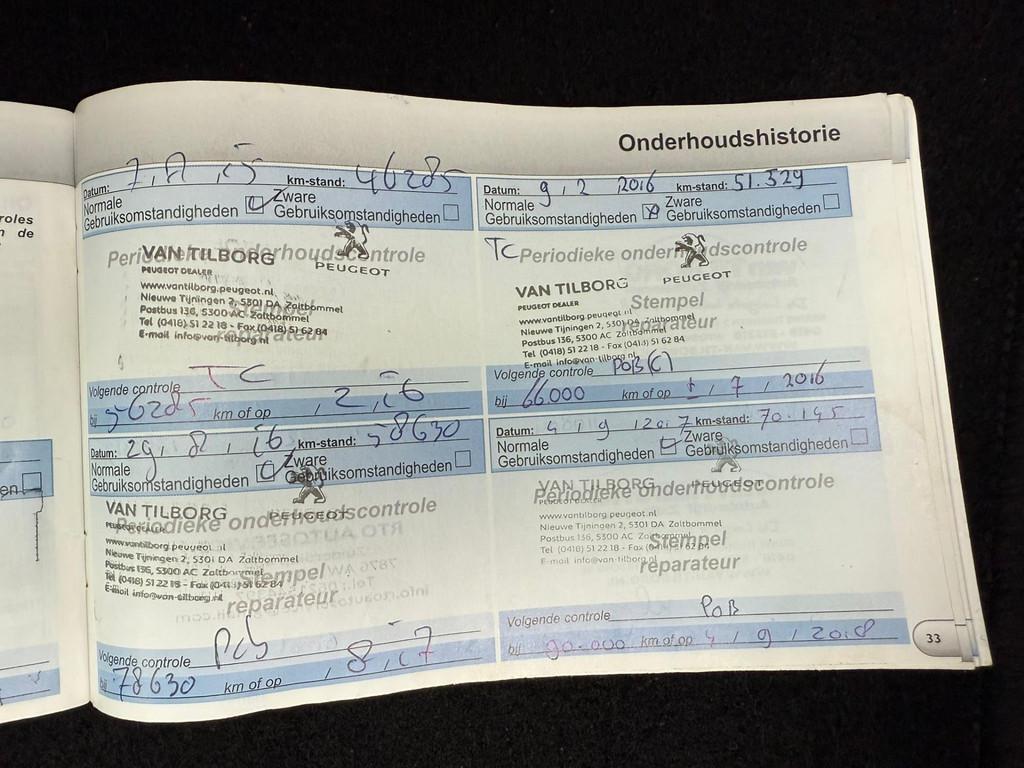 Onderhoudshistorie
roles
n de
en
Datum: 7, , 15 km-stand: 46285
Normale
Gebruiksomstandigheden
Zware
Gebruiksomstandigheden
Periodieke onderhoudscontrole
VAN TILBORG
PEUGEOT DEALER
PEUGEOT
www.vantilborg.peugeot.nl
Nieuwe Tijningen 2, 5301 DA Zaltbommel
Postbus 136, 5300 AC Zaltbommel
Tel (0418) 51 22 18 - Fax (0418) 51 62 84
E-mail info@van-tilborg.nl
Stempel
reparateur
Volgende controle TC
bij 56285 km of op , 2, 16
Datum: 9, 2 2016 km-stand: 51.329
Normale
Gebruiksomstandigheden
Zware
Gebruiksomstandigheden
TC Periodieke onderhoudscontrole
VAN TILBORG
PEUGEOT DEALER
PEUGEOT
www.vantilborg.peugeot.nl
Nieuwe Tijningen 2, 5301 DA Zaltbommel
Postbus 136, 5300 AC Zaltbommel
Tel (0418) 51 22 18 - Fax (0418) 51 62 84
E-mail info@van-tilborg.nl
Stempel
reparateur
Volgende controle POB(C)
bij 66.000 km of op ± , 7 , 2016
Datum: 29, 8, 16 km-stand: 58630
Normale
Gebruiksomstandigheden
Zware
Gebruiksomstandigheden
Periodieke onderhoudscontrole
VAN TILBORG
PEUGEOT DEALER
PEUGEOT
www.vantilborg.peugeot.nl
Nieuwe Tijningen 2, 5301 DA Zaltbommel
Postbus 136, 5300 AC Zaltbommel
Tel (0418) 51 22 18 - Fax (0418) 51 62 84
E-mail info@van-tilborg.nl
Stempel
reparateur
Volgende controle
bij 78630 km of op , 8, 17
Datum: 4 , 9 , 2017 km-stand: 70.145
Normale
Gebruiksomstandigheden
Zware
Gebruiksomstandigheden
Periodieke onderhoudscontrole
VAN TILBORG
PEUGEOT DEALER
PEUGEOT
www.vantilborg.peugeot.nl
Nieuwe Tijningen 2, 5301 DA Zaltbommel
Postbus 136, 5300 AC Zaltbommel
Tel (0418) 51 22 18 - Fax (0418) 51 62 84
E-mail info@van-tilborg.nl
Stempel
reparateur
Volgende controle POB
bij 90.000 km of op 4 , 9 , 2018
33